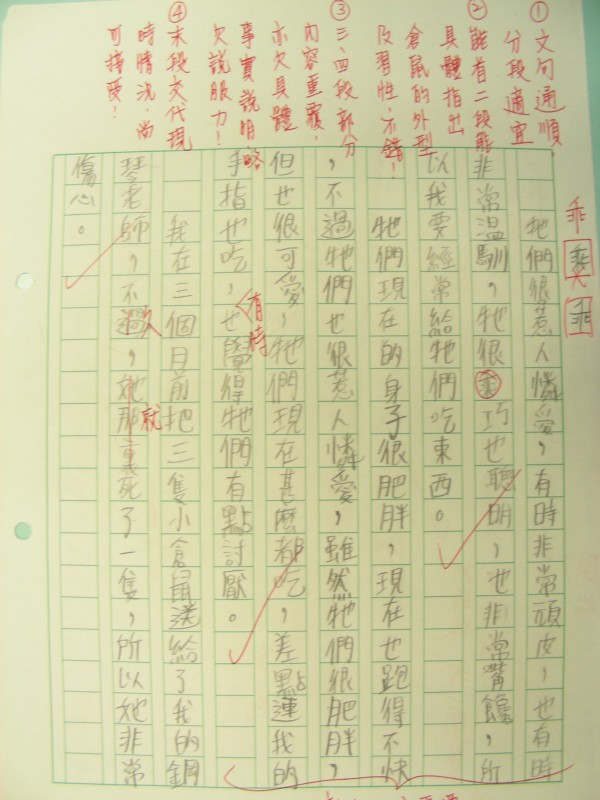 ①文句通順，
分段適宜
②能首二段能
具體指出
倉鼠的外型
及習性，不錯！
③三、四段部分
內容重覆，
亦欠具體
事實說明，略
欠說服力！
④末段交代現
時情況，尚
可接受！
乖
乖乖
牠們很惹人憐愛，有時非常頑皮，也有時
非常溫馴，牠很乖巧也聰明，也非常嘴饞，所
以我要經常給牠們吃東西。
牠們現在的身子很肥胖，現在也跑得不快
，不過牠們也很惹人憐愛，雖然牠們很肥胖，
但也很可愛，牠們現在甚麼都吃，差點連我的
手指也吃，也覺得牠們有點討厭。
有時
我在三個月前把三隻小倉鼠送給了我的鋼
琴老師，不過，她那裏死了一隻，所以她非常
入
就
傷心。